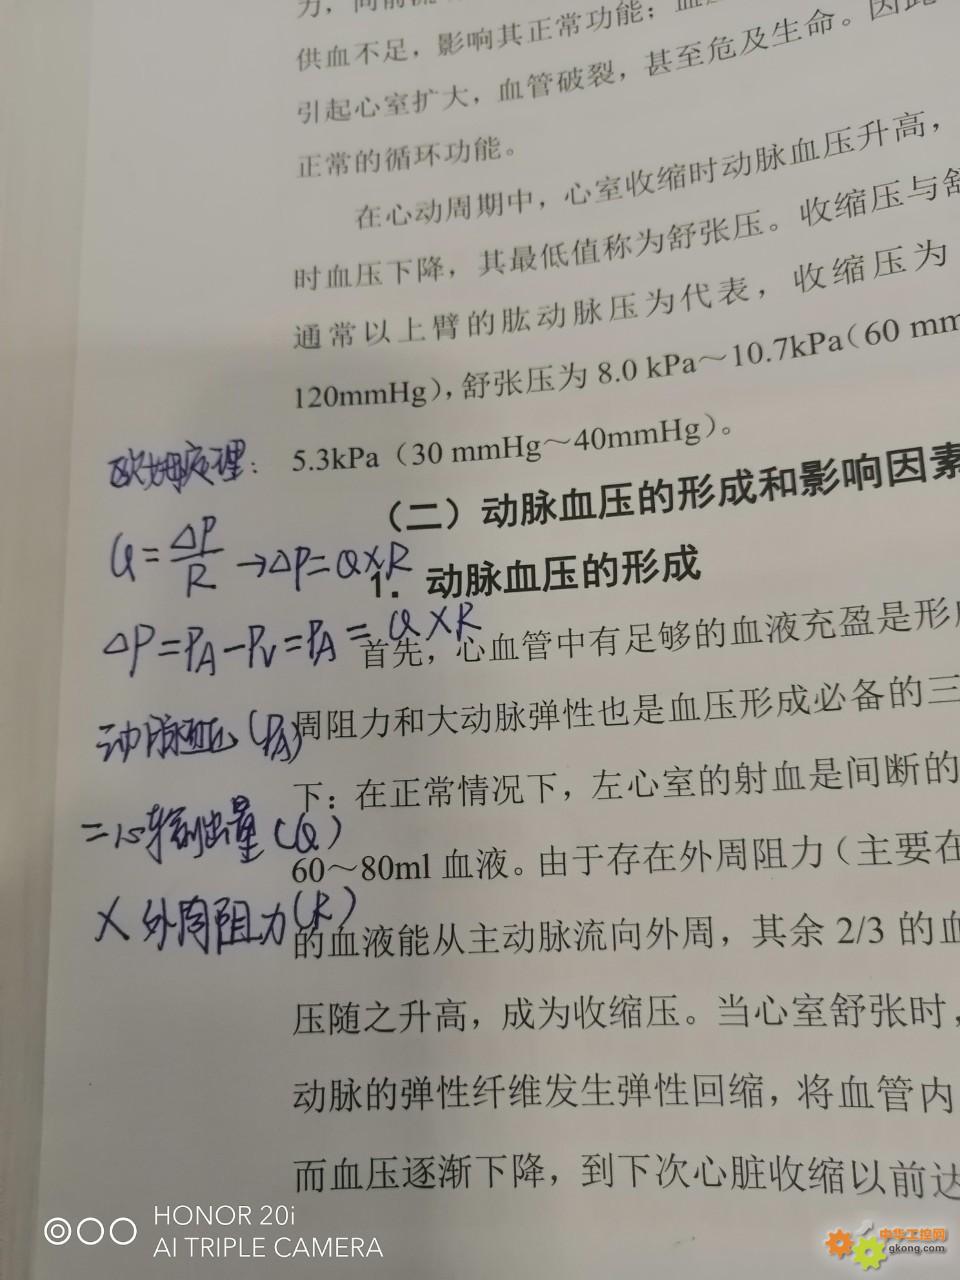 力，
供血不足，影响其正常功能；血
引起心室扩大，血管破裂，甚至危及生命。因此
正常的循环功能。
在心动周期中，心室收缩时动脉血压升高，
时血压下降，其最低值称为舒张压。收缩压与舒
通常以上臂的肱动脉压为代表，收缩压为
120mmHg)，舒张压为 8.0 kPa～10.7kPa（60 mm
5.3kPa（30 mmHg～40mmHg）。
（二）动脉血压的形成和影响因素
1. 动脉血压的形成
首先，心血管中有足够的血液充盈是形
周阻力和大动脉弹性也是血压形成必备的三
下：在正常情况下，左心室的射血是间断的
60～80ml 血液。由于存在外周阻力（主要在
的血液能从主动脉流向外周，其余 2/3 的血
压随之升高，成为收缩压。当心室舒张时，
动脉的弹性纤维发生弹性回缩，将血管内
而血压逐渐下降，到下次心脏收缩以前达
欧姆定理：
Q=ΔP/R→ΔP=Q×R
ΔP=PA-PV=PA=Q×R
动脉血压(PA)
=心输出量(Q)
×外周阻力(R)
HONOR 20i
AI TRIPLE CAMERA
中华工控网
gkong.com